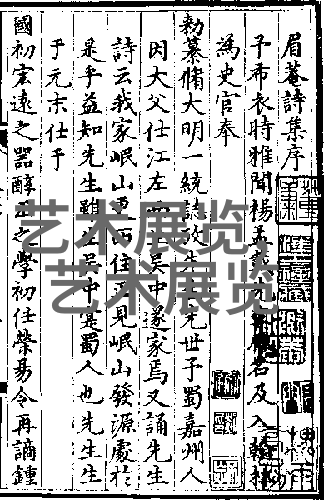 眉菴詩集序
予布衣時雅聞楊孟義名及入翰林
為史官奉
勑纂脩大明一統誌攷先生先世予蜀嘉州人
因大父仕江左而生吳中遂家焉又誦先生
詩云我家岷山更西住正見岷山發源處於
是乎益知先生雖生吳中寔蜀人也先生生
于元末仕于
國初宏遠之器醇正之學初任滎昜令再謫鍾
艺术展览
艺术展览